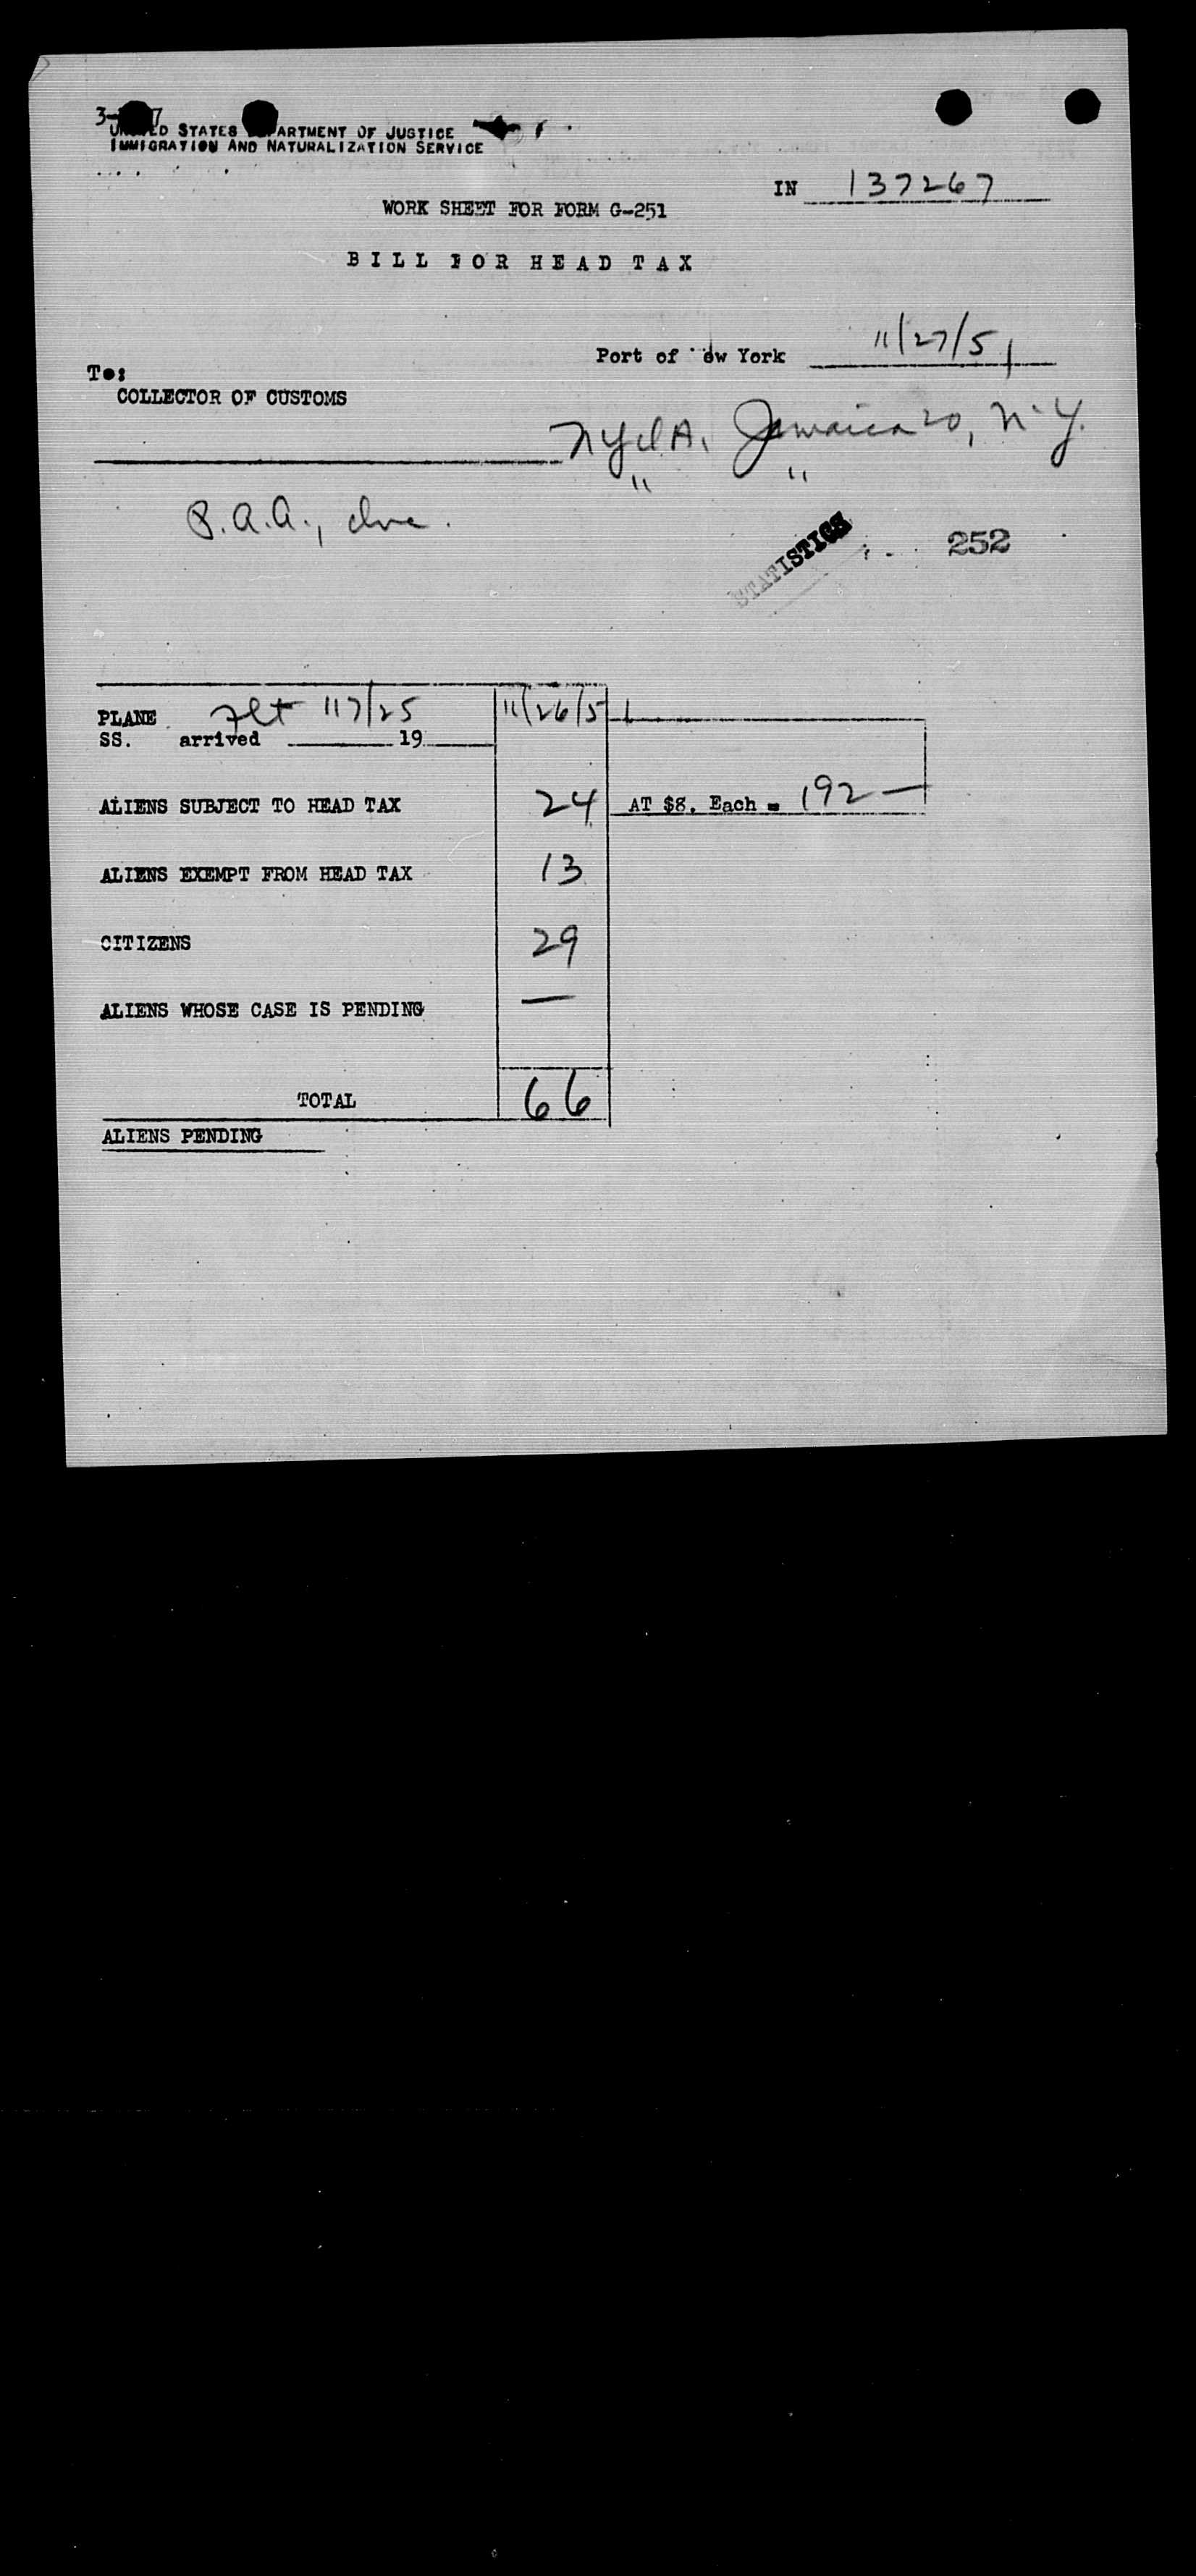 UNITED STATES DEPARTMENT OF JUSTICE
IMMIGRATION AND NATURALIZATION SERVICE
IN 137267
WORK SHEET FOR FORM G-251
BILL FOR HEAD TAX
Port of New York 11/27/51
To:
COLLECTOR OF CUSTOMS
NYIA, Jamaica 20, N.Y.
" "
P.A.A., Inc.
STATISTICS 252
PLANE Flt 117/25 11/26/51
SS. arrived 19
ALIENS SUBJECT TO HEAD TAX 24 AT $8. Each = 192 —
ALIENS EXEMPT FROM HEAD TAX 13
CITIZENS 29
ALIENS WHOSE CASE IS PENDING —
TOTAL 66
ALIENS PENDING